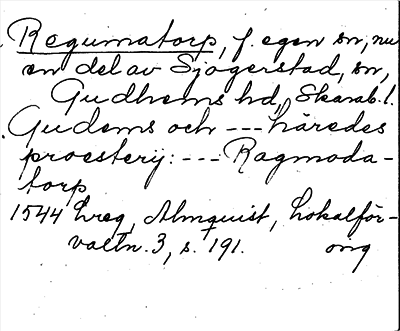 Regumatorp, f. egen sn, nu
en del av Sjogerstad, sn,
Gudhems hd, Skarab. l.
Gudems och --- häredes
proesterij: --- Ragmoda-
torp
1544 hreg, Almquist, Lokalför-
valtn. 3, s. 191. orig